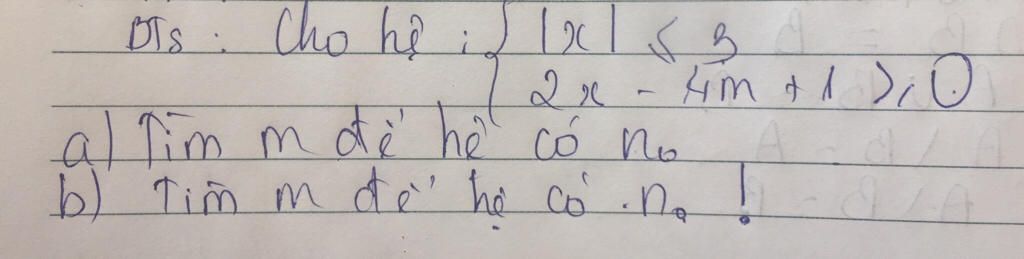 BT5 : Cho hệ : { |x| ≤ 3
2x - 4m + 1 ≥ 0
a) Tìm m để hệ có n₀
b) Tìm m để hệ có n₀ !